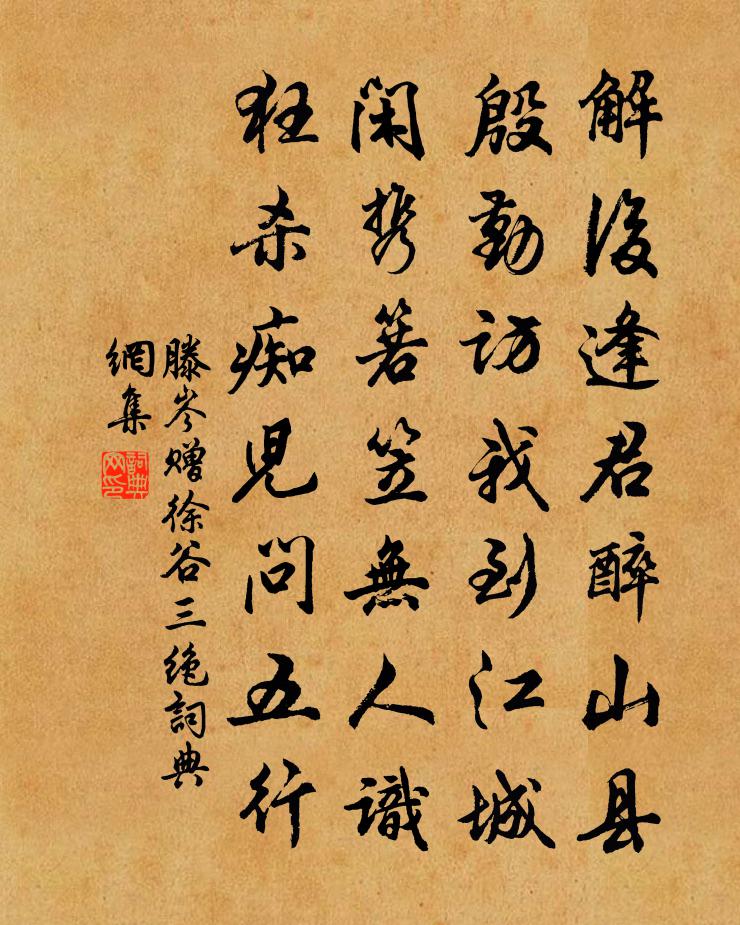 解後逢君醉山县
殷勤访我到江城
闲携箬笠無人識
狂杀痴児问五行
滕岑赠徐谷三绝詞典
網集
詞典
网印